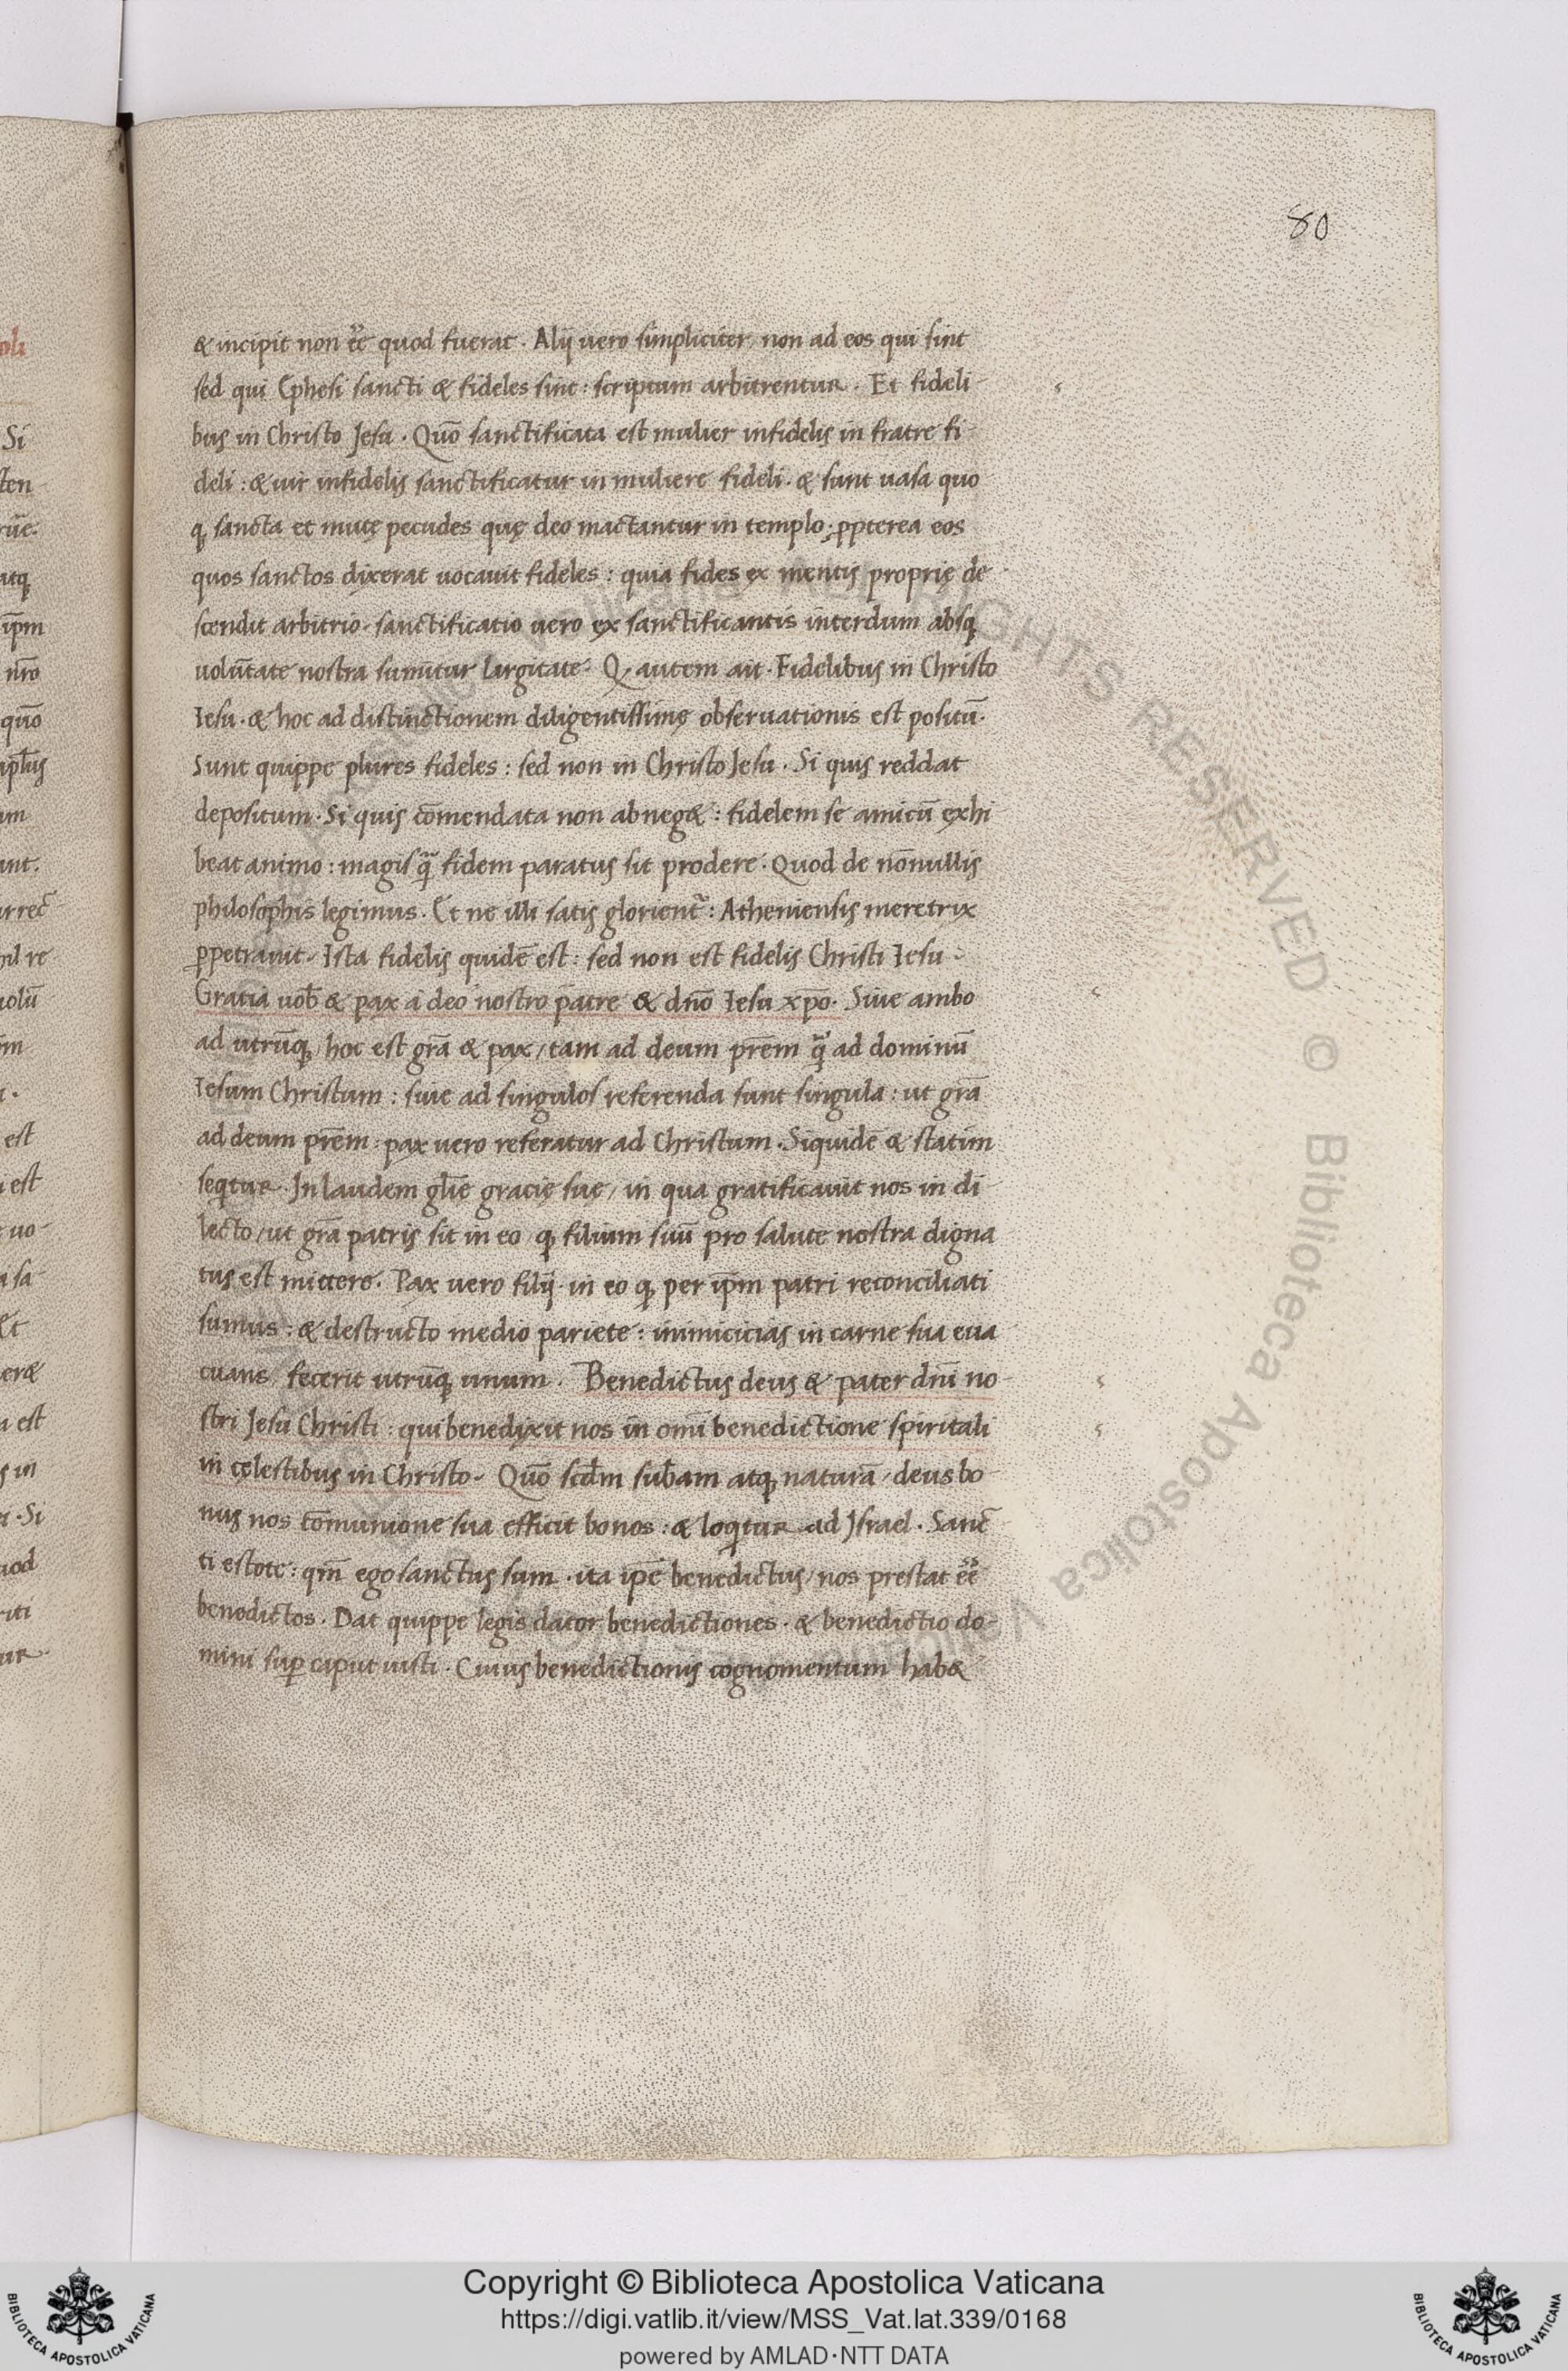 80
& incipit non ee͂ quod fuerat. Alij uero simpliciter non ad eos qui sint
sed qui Ephesi sancti & fideles sint: scriptum arbitrentur. Et fideli-
bus in Christo Jesu. Quō sanctificata est mulier infidelis in fratre fi
deli: & uir infidelis sanctificatur in muliere fideli. & sunt uasa quo
qꝫ sancta et mutę pecudes quę deo mactantur in templo: ꝓpterea eos
quos sanctos dixerat uocauit fideles: quia fides ex mentis proprię de-
scendit arbitrio. sanctificatio uero ex sanctificantis interdum absqꝫ
volūtate nostra sumītur largitate. Qꝫ autem ait. Fidelibus in Christo
Iesu. & hoc ad distinctionem diligentissimę obseruationis est positū.
Sunt quippe plures fideles: sed non in Christo Jesu. Si quis reddat
depositum. Si quis cōmendata non abneg&: fidelem se amicū exhi
beat animo: magis q̄ fidem paratus sit prodere. Quod de nōnullis
philosophis legimus. Et ne illi satis glorient᷑: Atheniensis meretrix
ꝑpetrauit. Ista fidelis quidē est: sed non est fidelis Christi Iesu.
Gratia uob̄ & pax a deo nostro patre & dn̄o Iesu xp̄o. Siue ambo
ad utrūqꝫ / hoc est grā & pax / tam ad deum prēm q̄ ad dominū
Iesum Christum: siue ad singulos referenda sunt singula: ut grā
ad deum prēm: pax uero referatur ad Christum. Siquidē & statim
seqitur. In laudem glīe gracię suę / in qua gratificauit nos in di-
lecto / ut grā patris sit in eo qꝫ filium suū pro salute nostra digna
tus est mittere. Pax uero filij. in eo qꝫ per ip̄m patri reconciliati
sumus: & destructo medio pariete: inimicicias in carne sua eua
cuans fecerit utrūqꝫ unum. Benedictus deus & pater dn̄i no-
stri Jesu Christi: qui benedixit nos in om̄i benedictione spiritali
in celestibus in Christo. Quō scd̄m sub̄am atqꝫ naturā / deus bo-
nus nos cōmunione sua efficit bonos: & loqitur ad Israel. Sanc-
ti estote: qm̄ ego sanctus sum. ita ip̄e benedictus / nos prestat ee͂
benedictos. Dat quippe legis dator benedictiones. & benedictio do-
mini suꝑ caput iusti. Cuius benedictionis cognomentum hab&
Copyright © Biblioteca Apostolica Vaticana
https://digi.vatlib.it/view/MSS_Vat.lat.339/0168
powered by AMLAD·NTT DATA